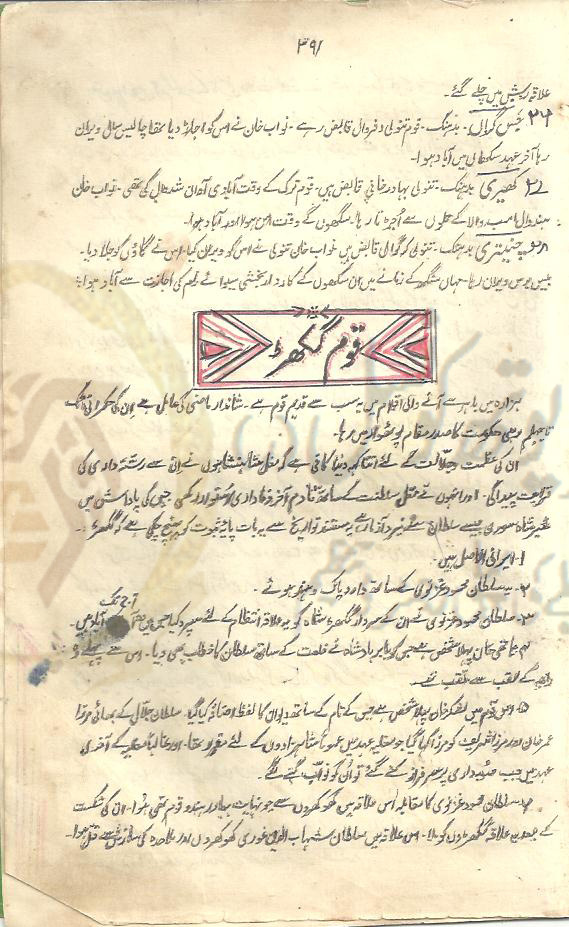 ۳۹۱
علاقے ریش میں چلے گئے۔
جس گراں۔ بدہنگ۔ قوم تنولی دفروال قابض رہے۔ نواب خان نے اس کو اجاڑ دیا تھا چالیس سال ویران
رہا آخر عہد سکھاں میں آباد ہوا۔
کھیری بدہنگ۔ تنولی بہادر خانی قابض ہیں۔ قوم ترک کے وقت آبادی آوان شدھال کی تھی۔ نواب خان
ہندوال امب والا کے حملوں سے اُجڑتا رہا۔ سکھوں کے وقت امن ہوا اور آباد ہوا۔
بدہنگ۔ تنولی کرگوال قابض ہیں خواب خان تنولی نے اس کو ویران کیا۔ اس نے گاؤں کو جلا دیا۔
بیس برس ویران رہا۔ جہاں سنگھ کے زمانے میں ان سکھوں کے کاردار بخشی کی اجازت سے آباد ہوا
قوم گکھڑ
ہزارہ میں باہر سے آنے والی اقوام میں یہ سب سے قدیم قوم ہے۔ شاندار ماضی کی حامل ہے اِن کی حکمرانی اٹک
تا جہلم رہی حکومت کا صدر مقام پوٹھوار میں رہا۔
ان کی عظمت و جلالت کے لئے اتنا کہہ دینا کافی ہے کہ مغل شاہنشاہوں نے ان سے رشتہ داری کی
قرابت پیدا کی۔ اور انہوں نے مغل سلطنت کے ساتھ تا دم آخر وفاداری اُستوار رکھی جس کی پاداش میں
شیر شاہ سوری جیسے سلطان سے نبرد آزما رہے مستند تواریخ سے یہ بات پایۂ ثبوت کو پہنچ چکی ہے کہ گکھڑ:۔
۱۔ ایرانی الاصل ہیں۔
۲۔ یہ سلطان محمود غزنوی کے ساتھ وارد پاک و ہند ہوئے۔
۳۔ سلطان محمود غزنوی نے ان کے سردار گکھڑ شاہ کو یہ علاقہ انتظام کے لئے سپرد کیا جس میں آج تک آباد ہیں۔
۴۔ ہاتھی خان پہلا شخص ہے جس کو بابر بادشاہ نے خلعت کے ساتھ سلطان کا خطاب بھی دیا۔ اس سے پہلے وہ
راجہ کے لقب سے ملقب تھے۔
۵۔ اس قوم میں لشکر خان پہلا شخص ہے جس کے نام کے ساتھ دیوان کا لفظ اضافہ کیا گیا۔ سلطان جلال کے بھائی مرزا
عمر خان اور مرزا شریعت کو مرزا کہا گیا جو مغلیہ عہد میں عموماً شاہزادوں کے لئے مقرر تھا۔ اور غالباً مغلیہ کے آخری
عہد میں جب صوبیداری پر سرفراز کئے گئے تو اُن کو نوّاب کہنے لگے۔
۶۔ سلطان محمود غزنوی کا مقابلہ اُس علاقہ میں کھوکھروں سے جو نہایت بہادر ہندو قوم تھی ہوا۔ ان کی شکست
کے بعد یہ علاقہ گکھڑوں کو ملا۔ اس علاقہ میں سلطان شہاب الدین غوری کھوکھروں اور ملاحدہ کی سازش سے قتل ہوا۔